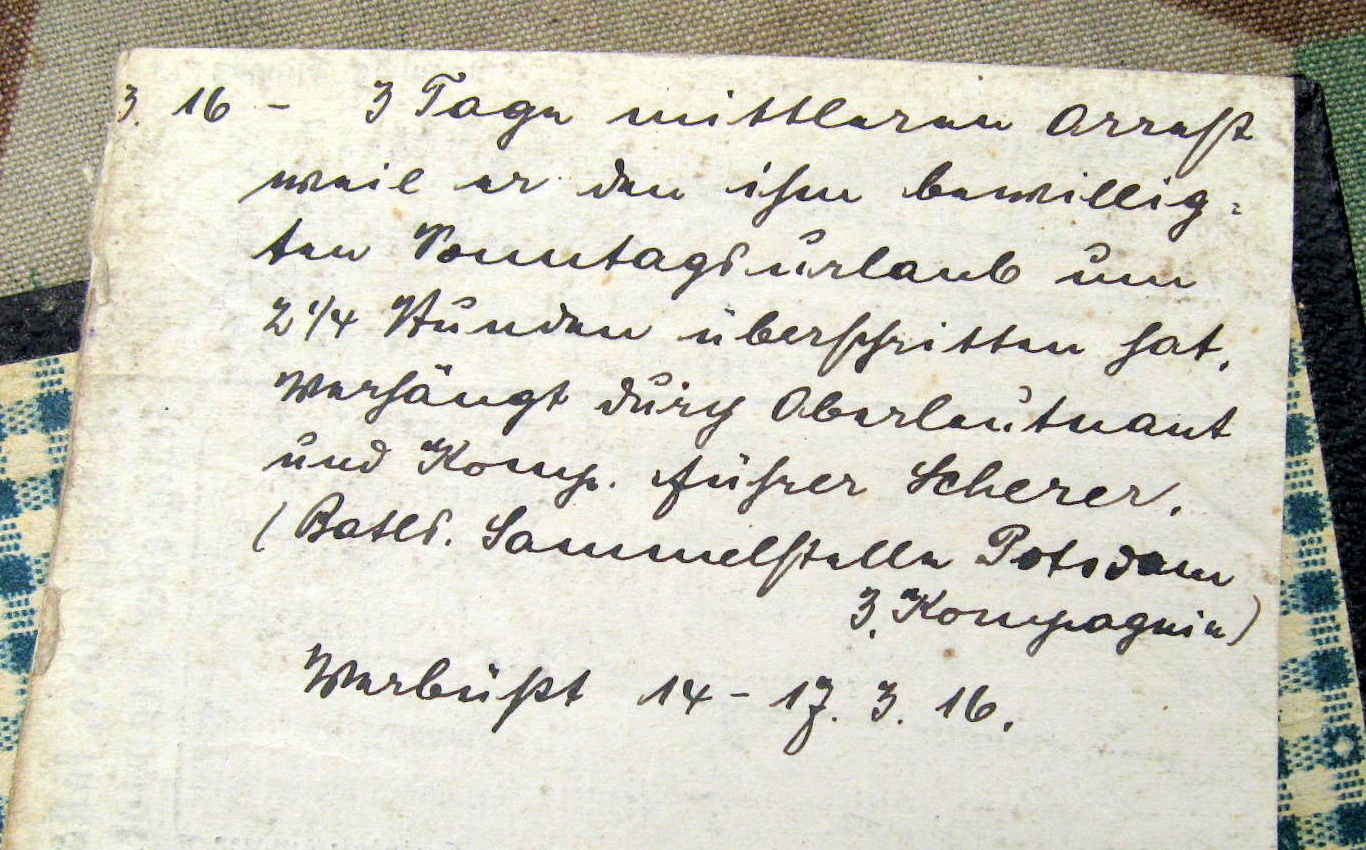 3. 16 - 3 Tage mittleren Arrest
weil er den ihm bewillig-
ten Sonntagsurlaub um
2 1/4 Stunden überschritten hat.
Verhängt durch Oberleutnant
und Komp. führer Scherer.
(Batls. Sammelstelle Potsdam
3. Kompagnie)
Verbüßt 14 - 17. 3. 16.